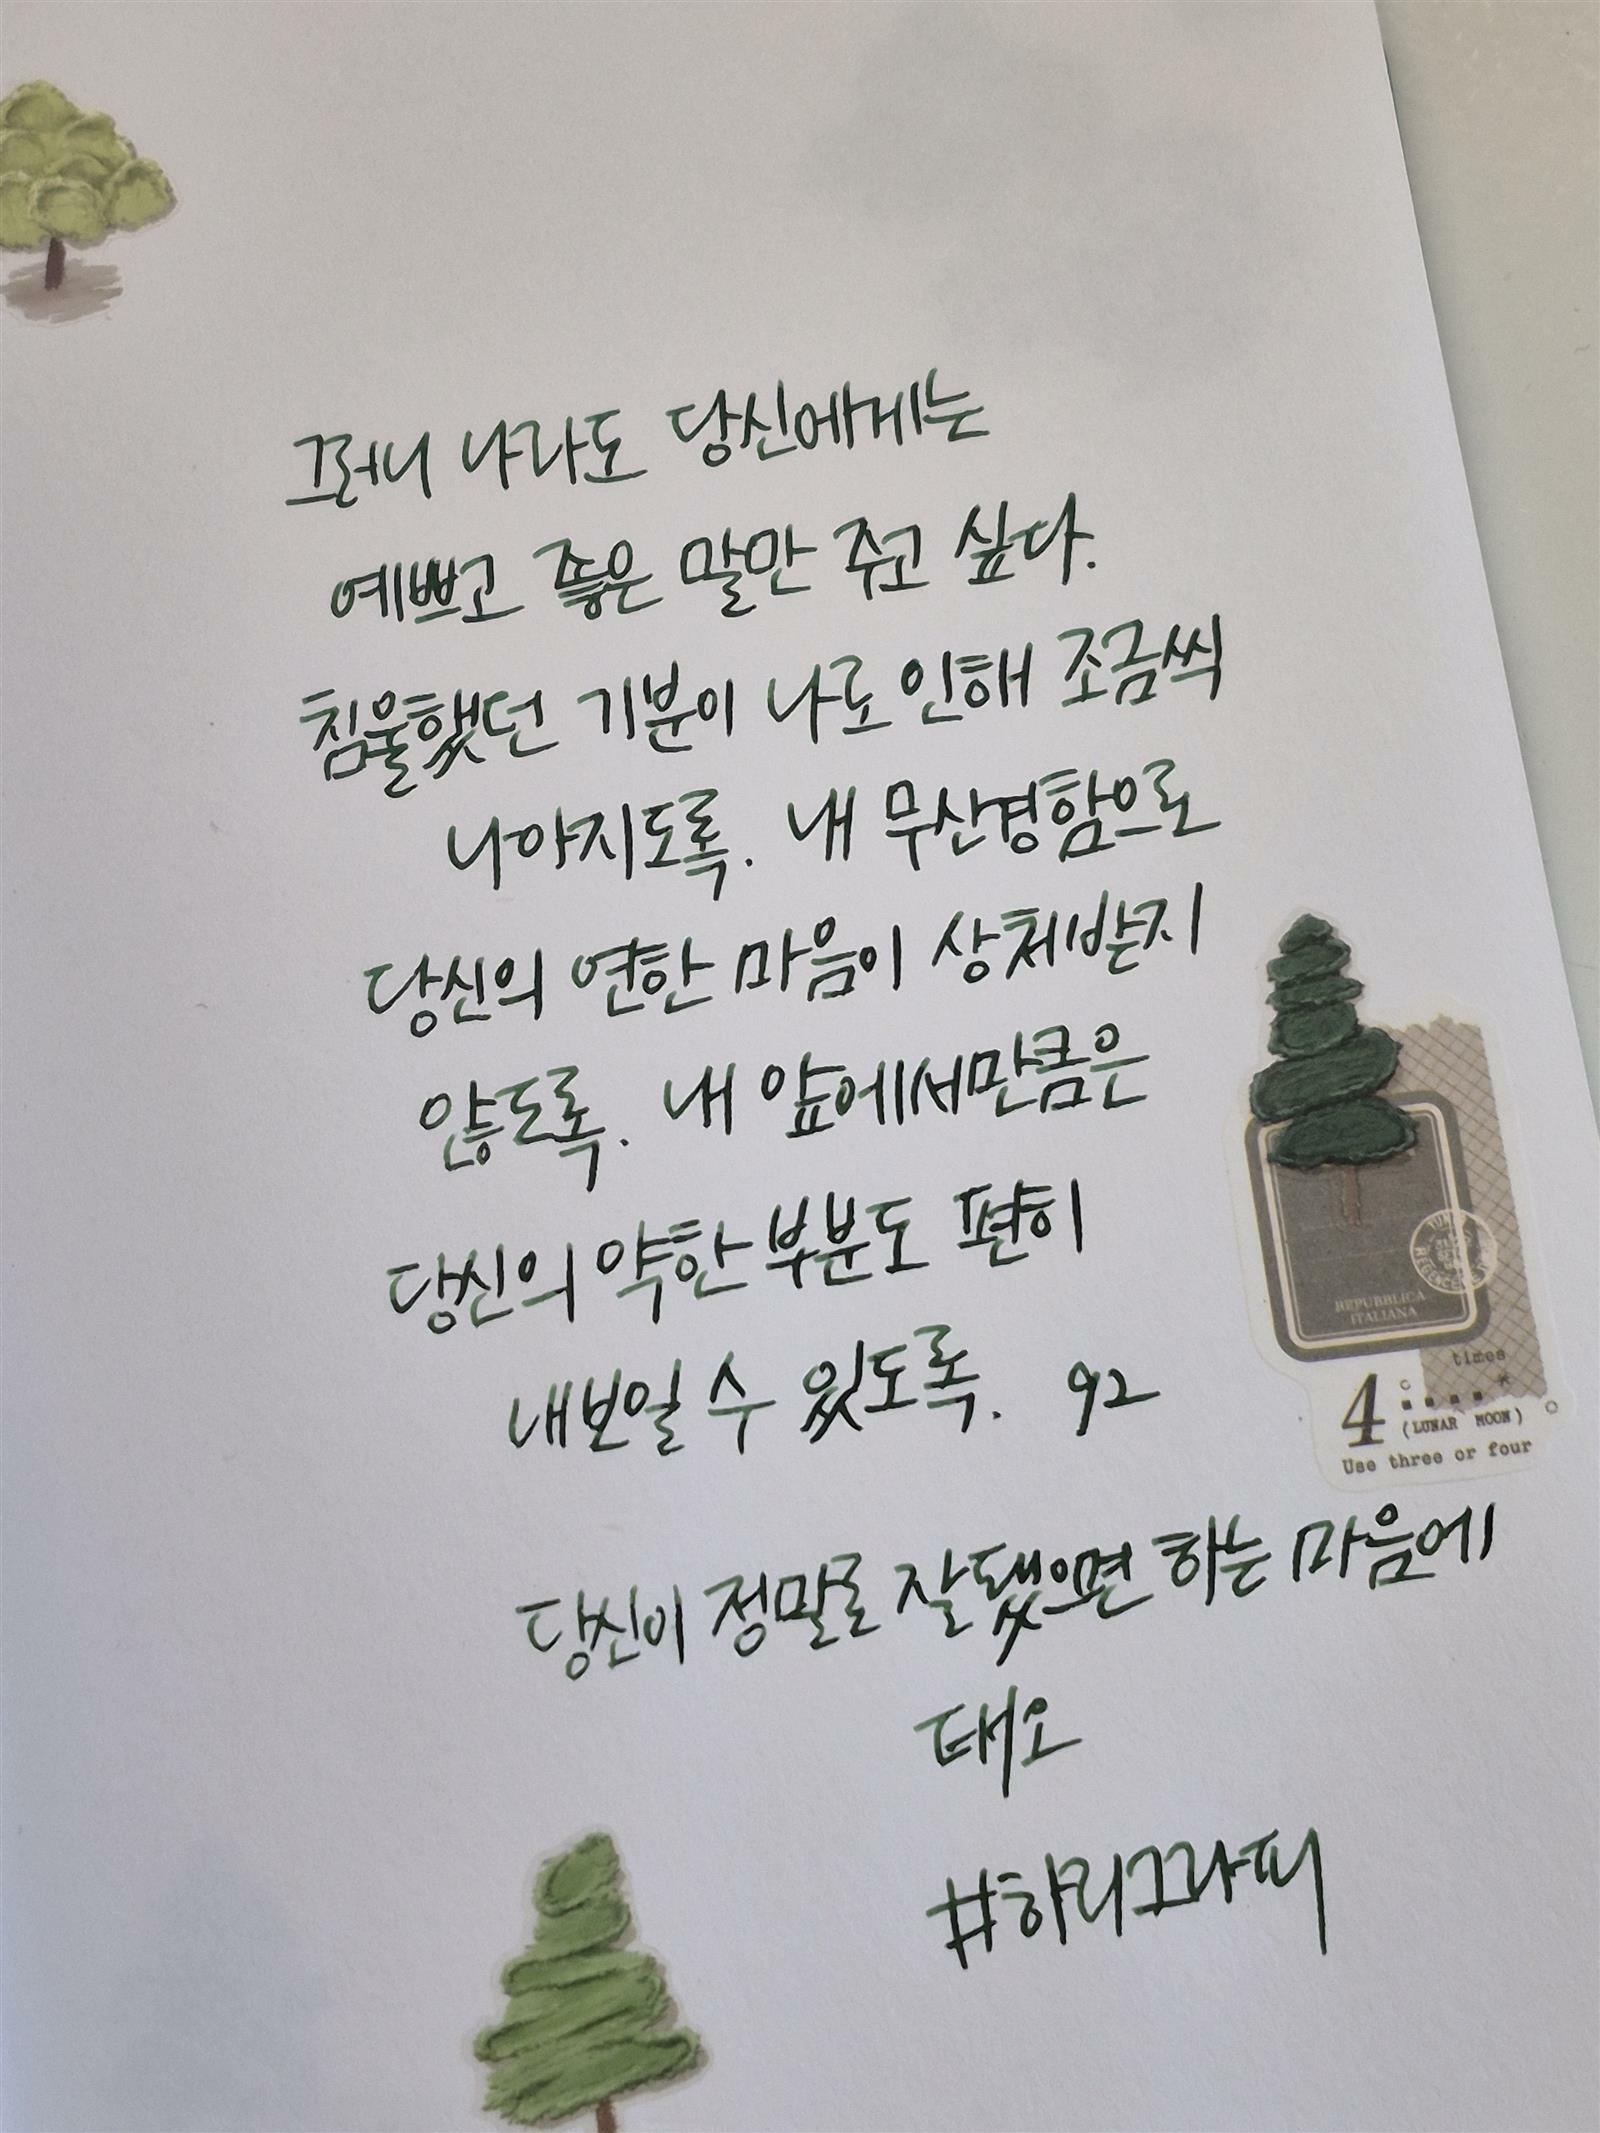 그러니 나라도 당신에게는
예쁘고 좋은 말만 주고 싶다.
침울했던 기분이 나로 인해 조금씩
나아지도록. 내 무신경함으로
당신의 연한 마음이 상처받지
않도록. 내 앞에서만큼은
당신의 약한 부분도 편히
내보일 수 있도록. 92
당신이 정말로 잘됐으면 하는 마음에
태오
#하리그라피
REPUBBLICA
ITALIANA
times
4 (LUNAR MOON)
Use three or four